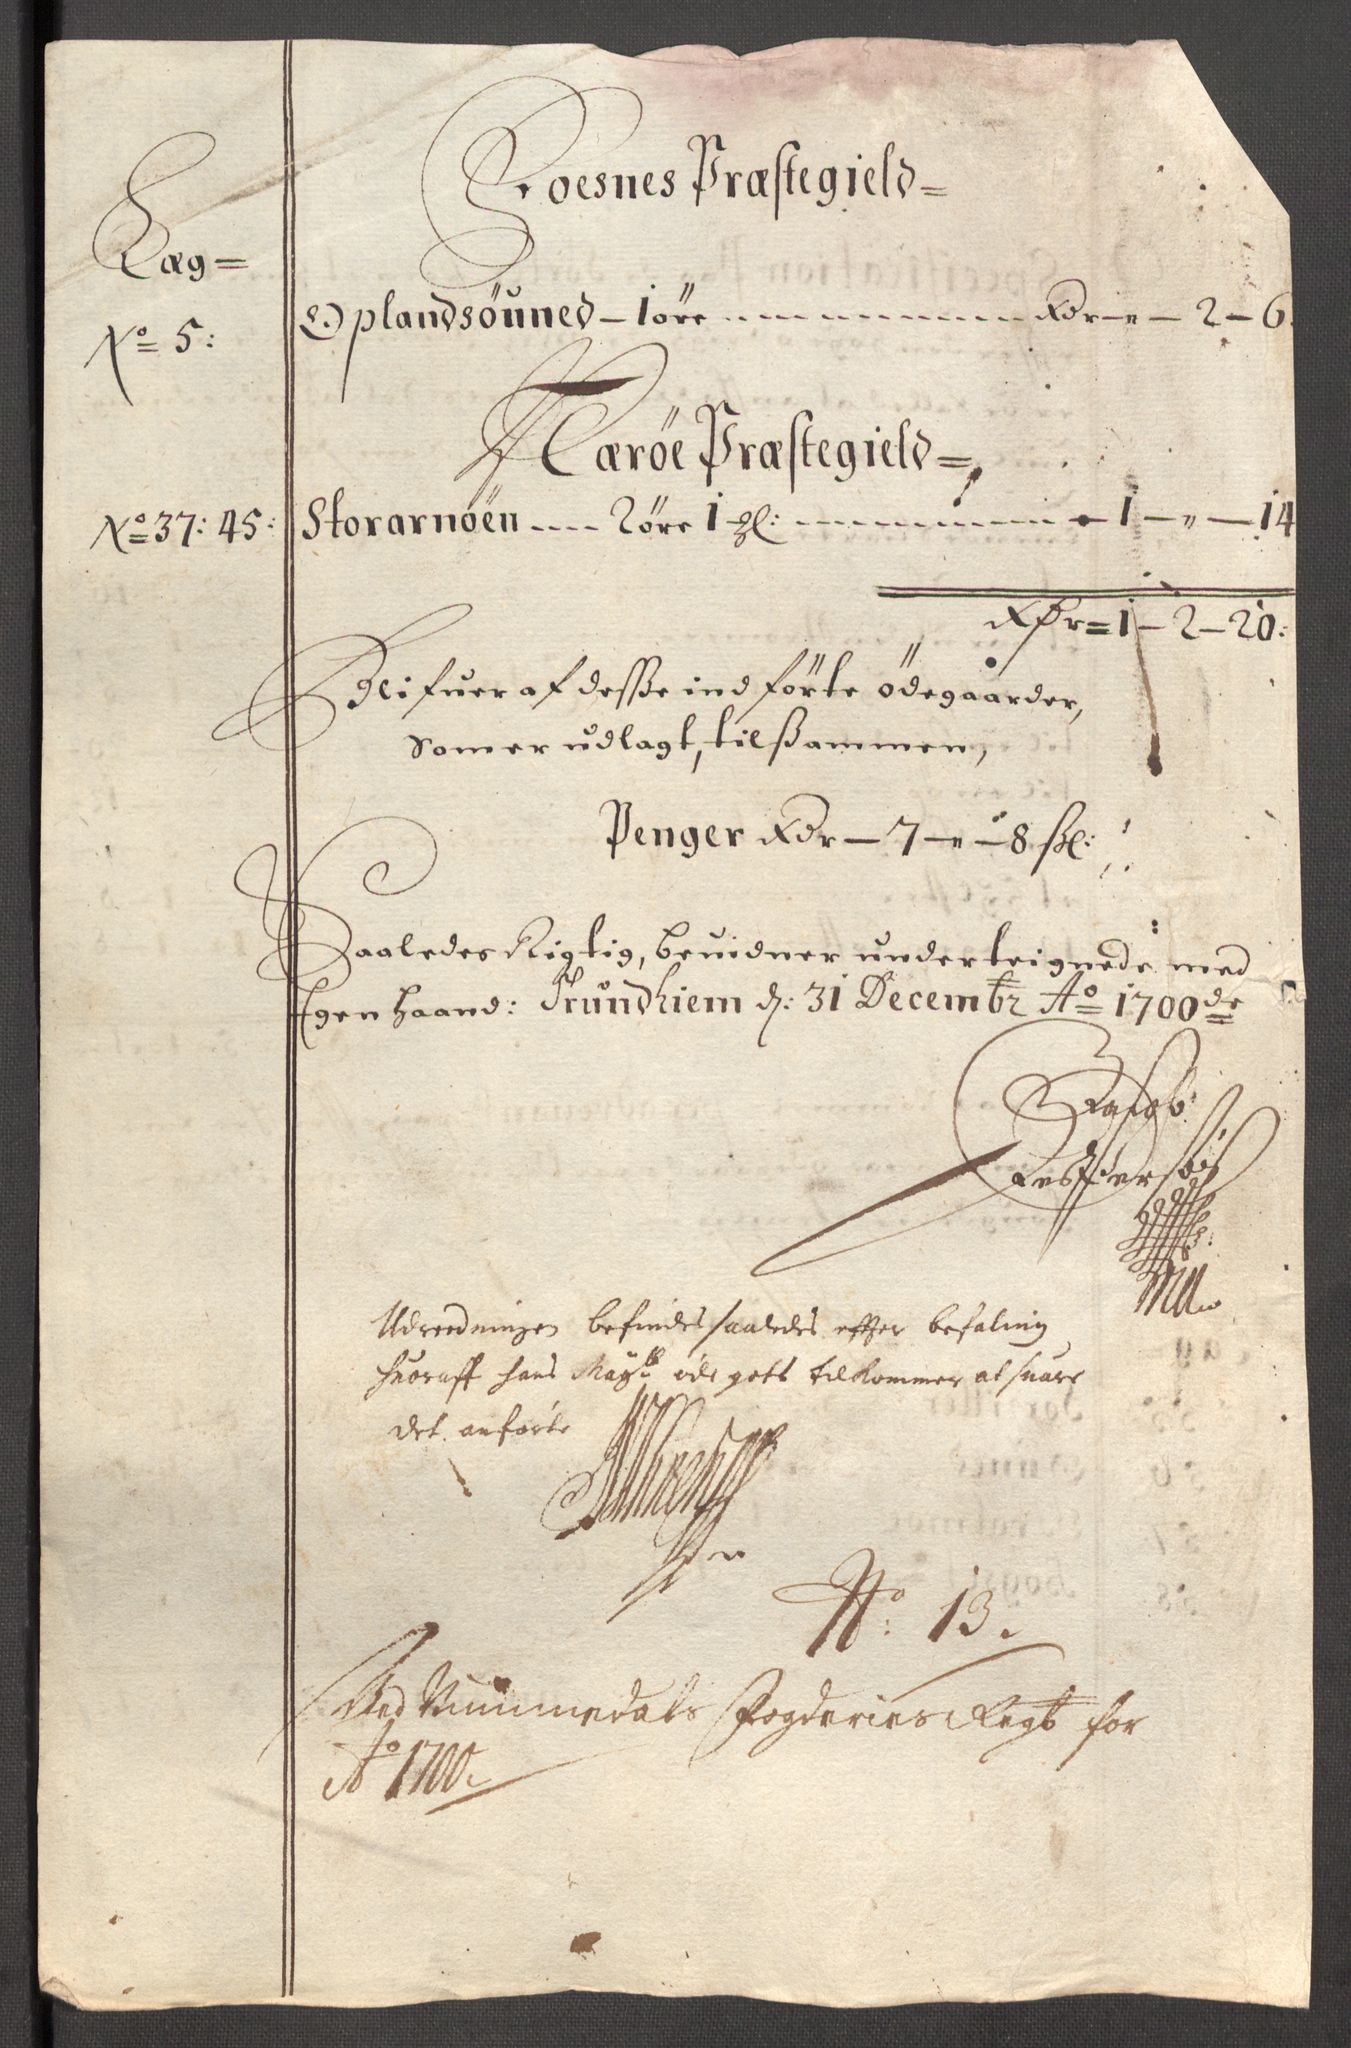 Foesnes Præstegield=
Læg=
No 5: Oplandsöuned - 1 öre ---- Rdr - " - 2 - 6.
Næröe Præstegield=
No 37: 45: Storarnöen ---- 2 öre 1 pl: ---- 1 - " - 14
Rdr = 1 - 2 - 20:
Blifuer af desse indförte ödegaarder,
Som er udlagt, tilsammen,
Penger Rdr - 7 - " - 8 sk:
Saaledes Rigtig, beuidner underteignede med
Egen haand: Trundhiem d: 31 Decembr Ao 1700de
Jacob
Jespersøn
Udreedningen befindes saaledes efter befaling
huoraff hans Maytz öde gots tilkommer at suare
det anförte
No: 13.
Ved Nummedals Fogderies Regsk for
Ao 1700.